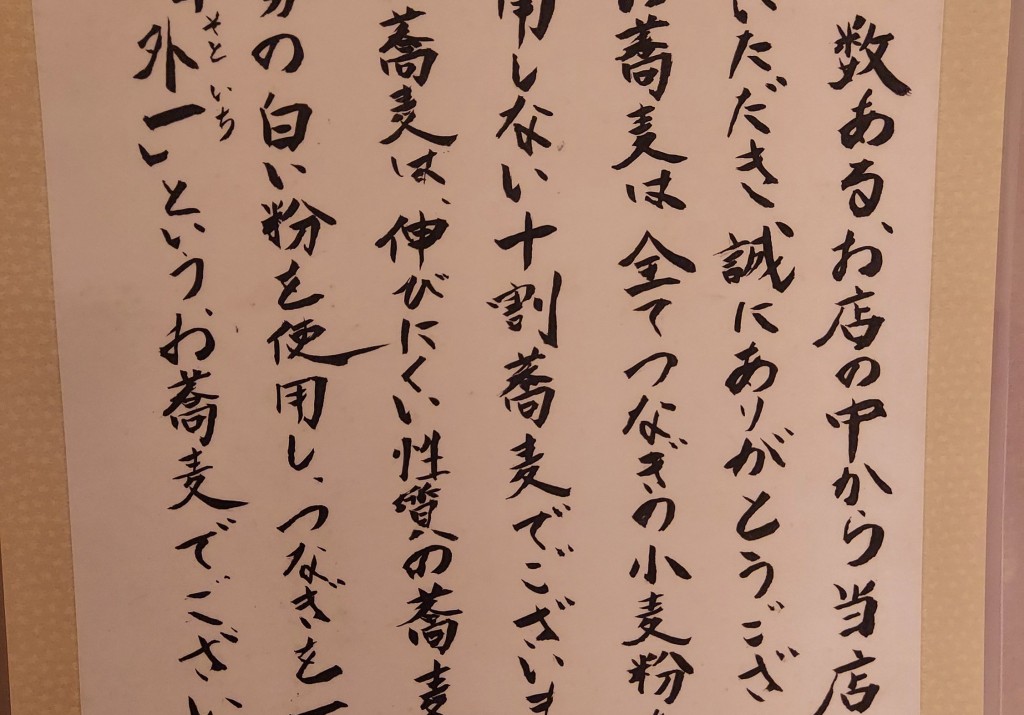 数あるお店の中から当店
いただき、誠にありがとうござ
蕎麦は全てつなぎの小麦粉
用しない十割蕎麦でございま
蕎麦は、伸びにくい性質の蕎麦
の白い粉を使用し、つなぎを一
外一」という、お蕎麦でござい
そといち